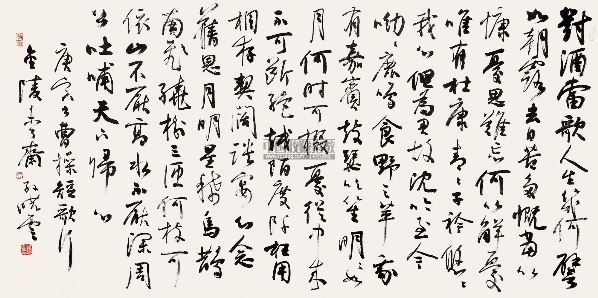 對酒當歌人生幾何譬
如朝露去日苦多慨當以
慷憂思難忘何以解憂
唯有杜康青々子衿悠々
我心但為君故沈吟至今
呦々鹿鳴食野之苹我
有嘉賓鼓瑟吹笙明々如
月何時可掇憂從中來
不可斷絕越陌度阡枉用
相存契闊談宴心念
舊恩月明星稀烏鵲
南飛繞樹三匝何枝可
依山不厭高水不厭深周
公吐哺天下歸心
庚寅冬曹操短歌行
金陵未了齋孫曉雲